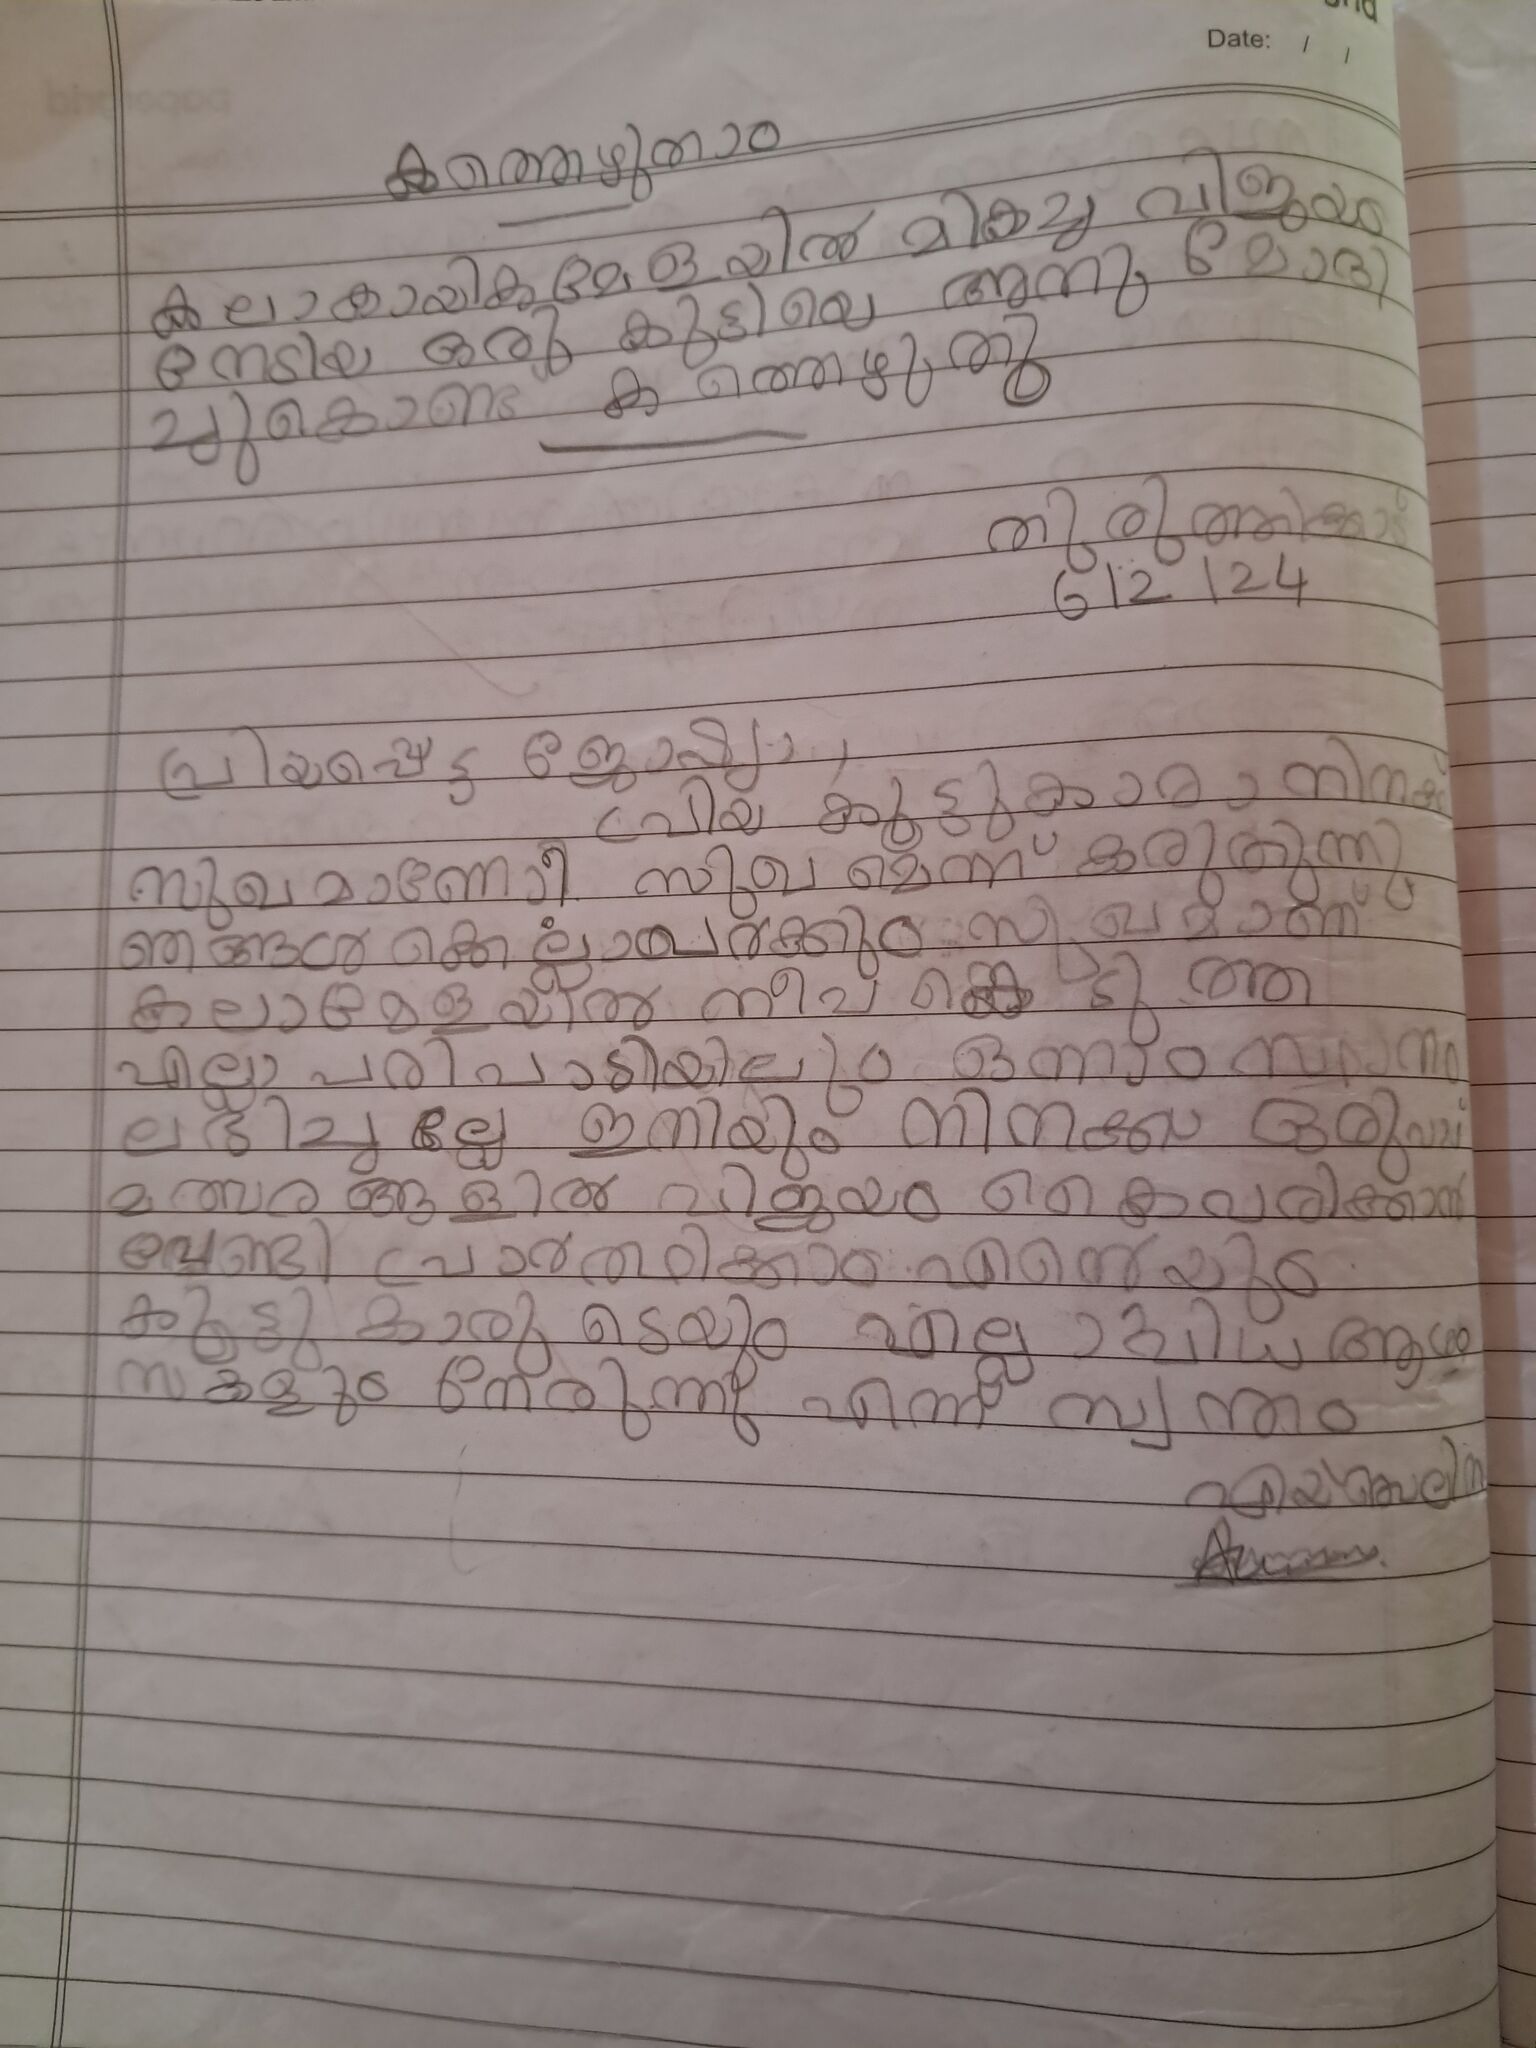 Date: / /
കത്തെഴുതാം
കലാകായികമേളയിൽ മികച്ച വിജയം
നേടിയ ഒരു കുട്ടിയെ അനുമോദി
ച്ചുകൊണ്ട് കത്തെഴുതൂ
തുരുത്തിക്കാട്
6/2/24
പ്രിയപ്പെട്ട ജോഷ്വാ,
പ്രിയ കൂട്ടുകാരാ നിനക്ക്
സുഖമാണോ. സുഖമെന്ന് കരുതുന്നു
ഞങ്ങൾക്കെല്ലാവർക്കും സുഖമാണ്
കലാമേളയിൽ നീ പങ്കെടുത്ത
എല്ലാ പരിപാടിയിലും ഒന്നാം സ്ഥാനം
ലഭിച്ചല്ലേ ഇനിയും നിനക്ക്
മത്സരങ്ങളിൽ വിജയം കൈവരിക്കാൻ
വേണ്ടി പ്രാർത്ഥിക്കാം. എന്റെയും
കൂട്ടുകാരുടെയും എല്ലാവിധ ആശം
സകളും നേരുന്നു എന്ന് സ്വന്തം
എയ്ഞ്ചെലിന